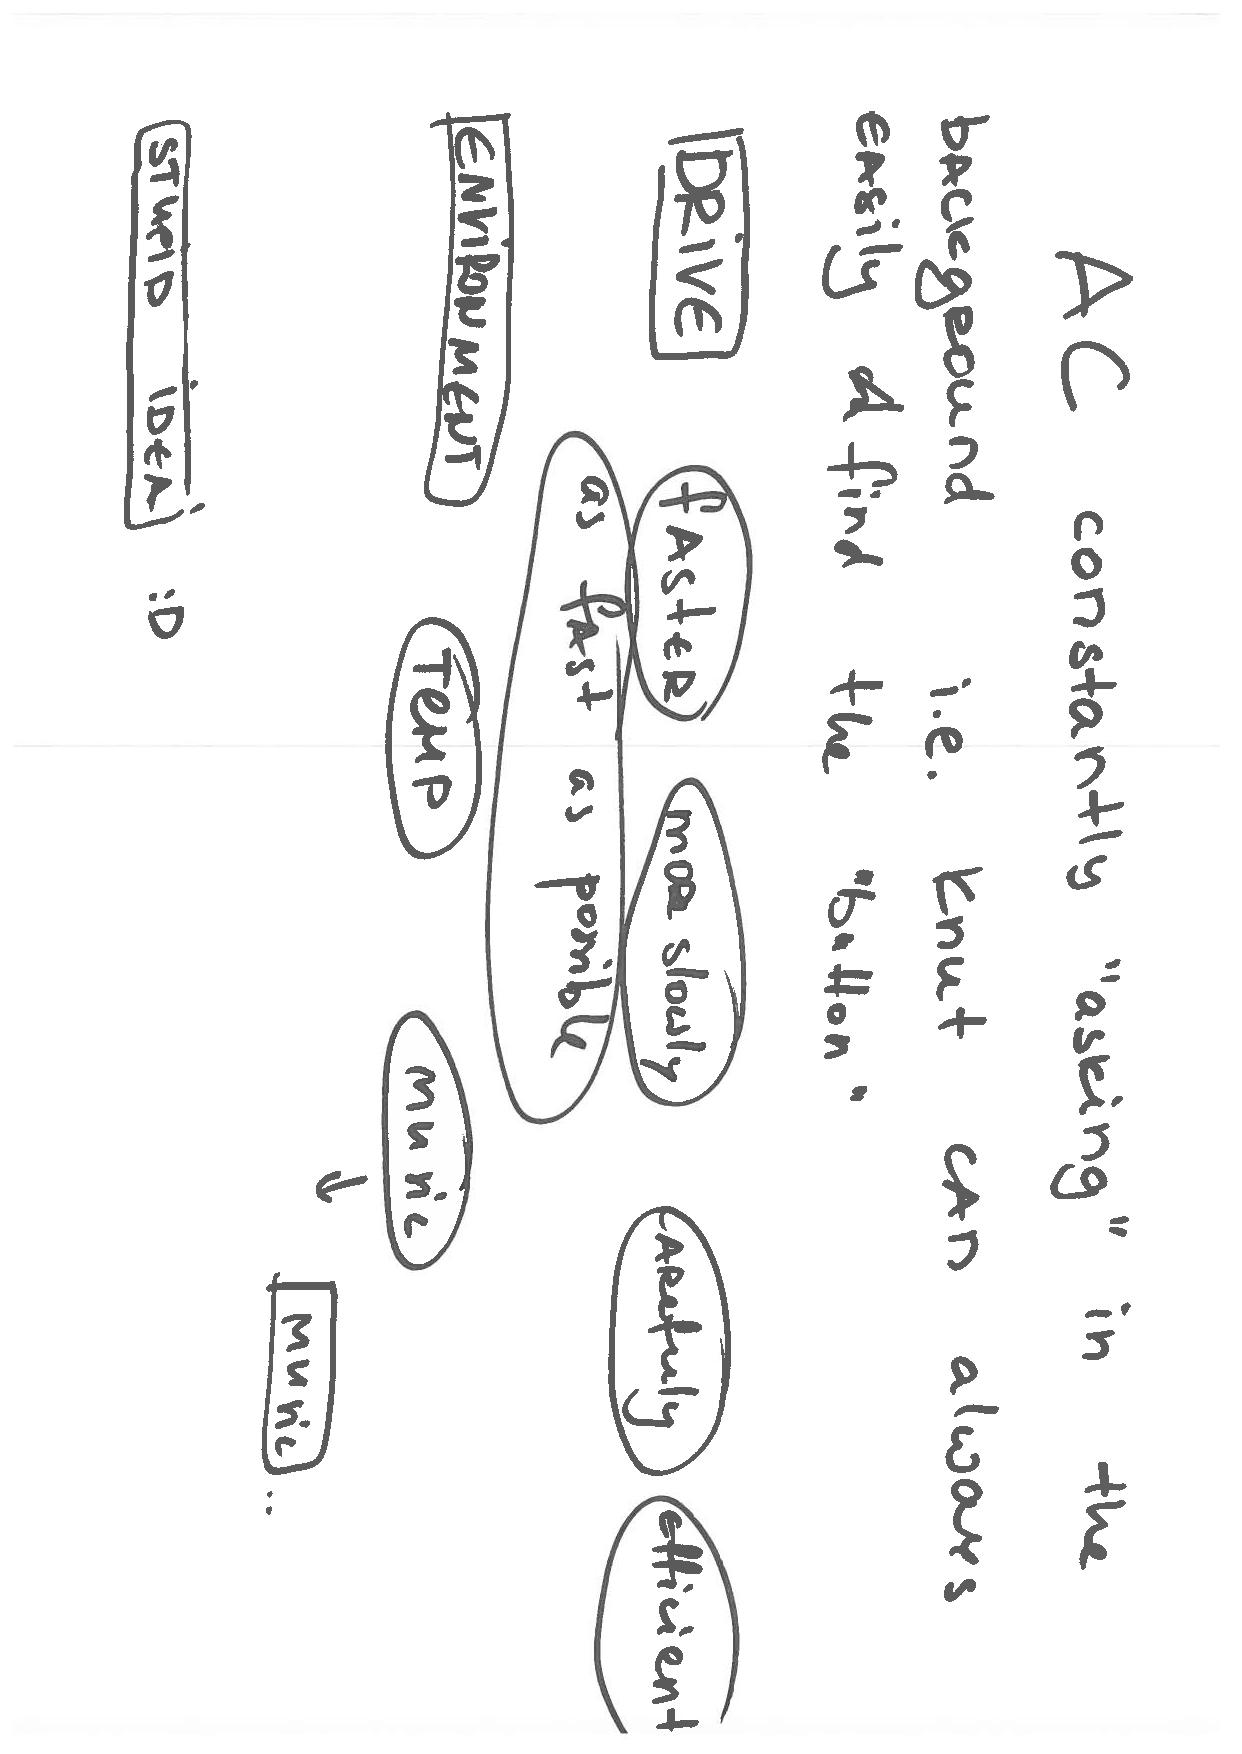 AC constantly "asking" in the
background i.e. Knut can always
easily & find the "button"
DRIVE
faster
more slowly
carefully
efficient
as fast as possible
ENVIRONMENT
TEMP
music
↓
music ..
STUPID IDEA! :D